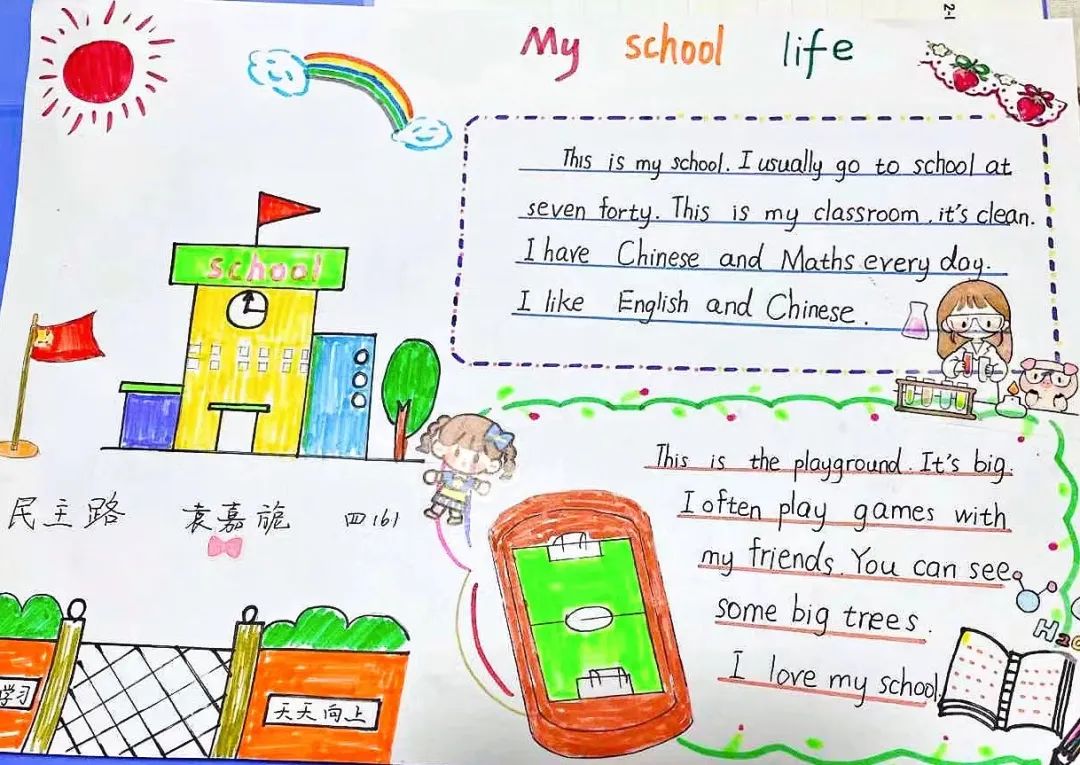 2-1
My school life
This is my school. I usually go to school at
seven forty. This is my classroom. it's clean.
I have Chinese and Maths every day.
I like English and Chinese.
school
This is the playground. It's big.
I often play games with
my friends. You can see
some big trees.
I love my school.
民主路 袁嘉旎 四(6)
学习
天天向上